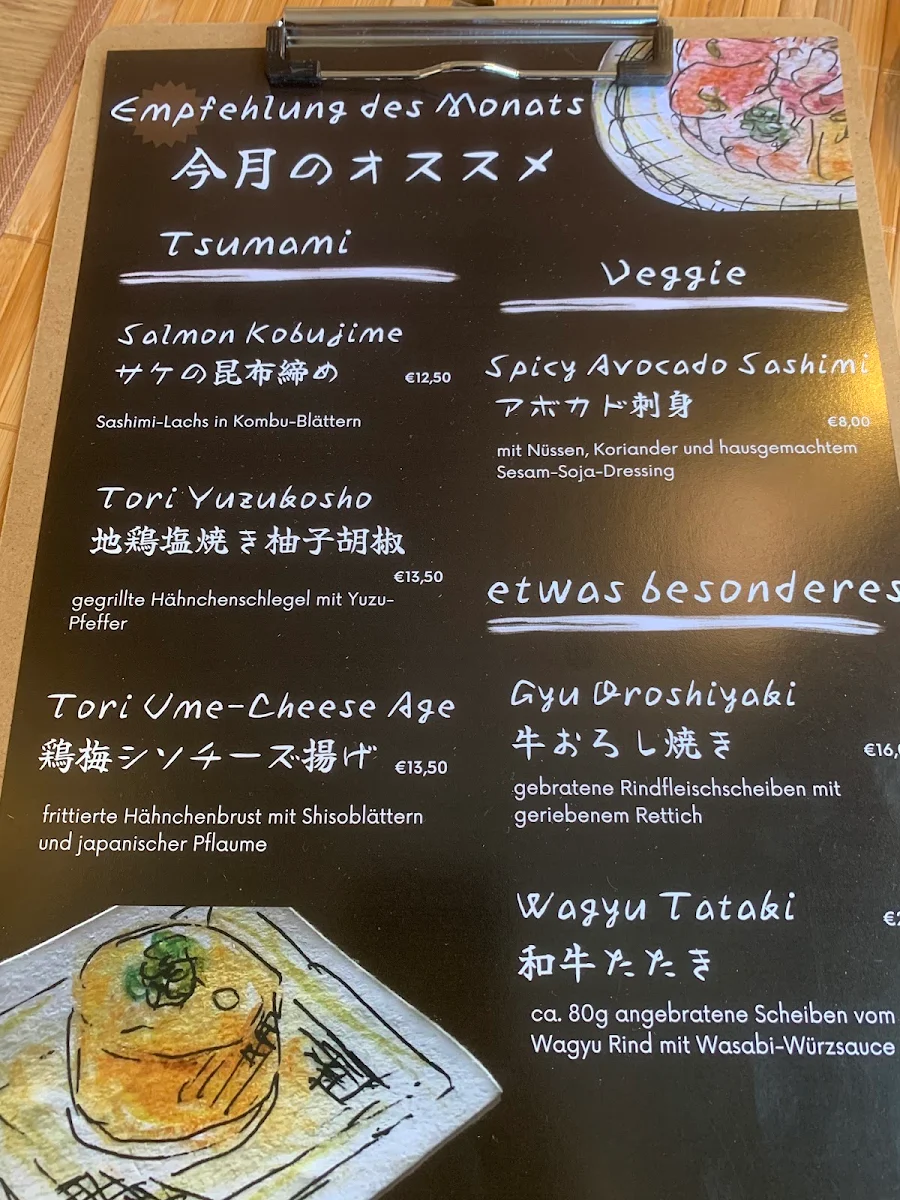 Empfehlung des Monats
今月のオススメ
Tsumami
Salmon Kobujime
サケの昆布締め
€12,50
Sashimi-Lachs in Kombu-Blättern
Tori Yuzukosho
地鶏塩焼き柚子胡椒
€13,50
gegrillte Hähnchenschlegel mit Yuzu-
Pfeffer
Tori Ume-Cheese Age
鶏梅シソチーズ揚げ
€13,50
frittierte Hähnchenbrust mit Shisoblättern
und japanischer Pflaume
Veggie
Spicy Avocado Sashimi
アボカド刺身
€8,00
mit Nüssen, Koriander und hausgemachtem
Sesam-Soja-Dressing
etwas besonderes
Gyu Oroshiyaki
牛おろし焼き
gebratene Rindfleischscheiben mit
geriebenem Rettich
Wagyu Tataki
和牛たたき
ca. 80g angebratene Scheiben vom
Wagyu Rind mit Wasabi-Würzsauce